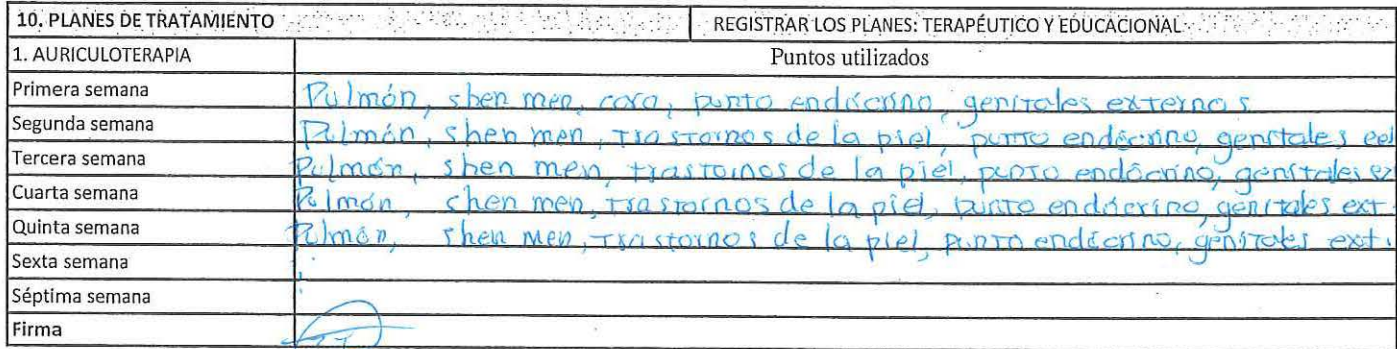 10. PLANES DE TRATAMIENTO REGISTRAR LOS PLANES: TERAPÉUTICO Y EDUCACIONAL
1. AURICULOTERAPIA Puntos utilizados
Primera semana Pulmón, shen men, cara, punto endócrino, genitales externos
Segunda semana Pulmón, shen men, trastornos de la piel, punto endócrino, genitales
Tercera semana Pulmón, shen men, trastornos de la piel, punto endócrino, genitales
Cuarta semana Pulmón, shen men, trastornos de la piel, punto endócrino, genitales ext.
Quinta semana Pulmón, shen men, trastornos de la piel, punto endócrino, genitales ext.
Sexta semana
Séptima semana
Firma